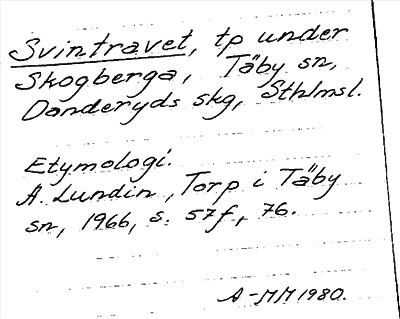 Svintravet, tp under
Skogberga, Täby sn,
Danderyds skg, Sthlmsl.
Etymologi.
A. Lundin, Torp i Täby
sn, 1966, s. 57f, 76.
A-MM 1980.